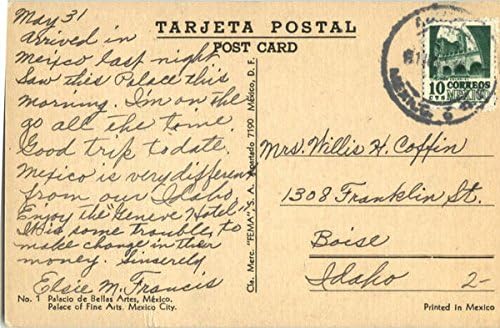 TARJETA POSTAL
POST CARD
May 31
Arrived in
Mexico last night
Saw this Palace this
morning. I'm on the
go all the time.
Good trip to date.
Mexico is very different
from our Idaho.
Enjoy the "Geneve Hotel"
It is some trouble, to
make change in their
money. Sincerely
Elsie M. Francis
No. 1 Palacio de Bellas Artes, México.
Palace of Fine Arts. Mexico City.
Cia. Merc. "FEMA", S. A. Apartado 7190 México, D. F.
10 CORREOS
CTS MEXICO
Mrs. Willis H. Coffin
1308 Franklin St.
Boise
Idaho 2-
Printed in Mexico